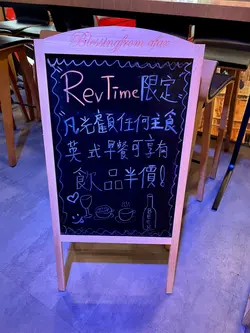 RevTime限定
凡光顧任何主食
英式早餐可享有
飲品半價!